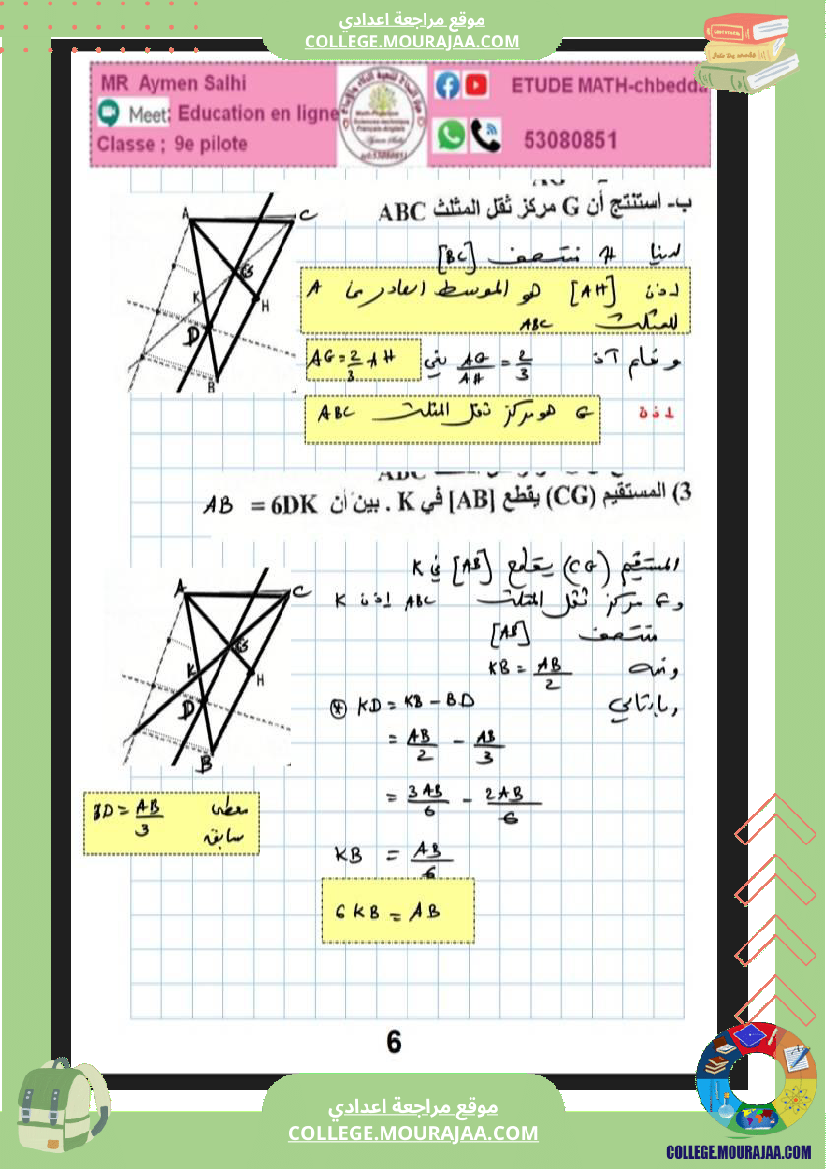 موقع مراجعة اعدادي
COLLEGE.MOURAJAA.COM
MR Aymen Salhi
Meet: Education en ligne
Classe ; 9e pilote
ETUDE MATH-chbedda
53080851
ب- استنتج أن G مركز ثقل المثلث ABC
لدينا H منتصف [BC]
اذن [AH] هو الموسط الصادر من A
للمثلث ABC
AG = 2/3 AH يعني AG/AH = 2/3
اذن G هو مركز ثقل المثلث ABC
A
C
G
K
H
D
B
3) المستقيم (CG) يقطع [AB] في K . بين أن AB = 6DK
المستقيم (CG) يقطع [AB] في K
و G مركز ثقل المثلث ABC اذن K
منتصف [AB]
ومنه KB = AB/2
وبالتالي * KD = KB - BD
= AB/2 - AB/3
= 3AB/6 - 2AB/6
KB = AB/6
6KB = AB
A
C
G
K
H
D
B
BD = AB/3 معطى
سابقة
6
موقع مراجعة اعدادي
COLLEGE.MOURAJAA.COM
COLLEGE.MOURAJAA.COM